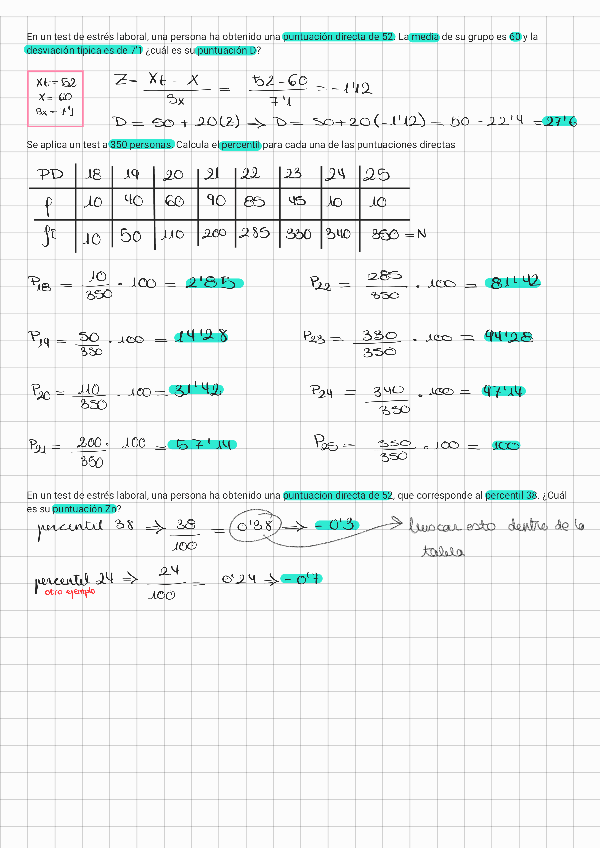 En un test de estrés laboral, una persona ha obtenido una puntuación directa de 52. La media de su grupo es 60 y la
desviación típica es de 7'1 ¿cuál es su puntuación D?
Xt = 52
X = 60
Sx = 7'1
Z = Xt - X / Sx = 52 - 60 / 7'1 = -1'12
D = 50 + 20(Z) → D = 50 + 20(-1'12) = 50 - 22'4 = 27'6
Se aplica un test a 350 personas. Calcula el percentil para cada una de las puntuaciones directas
PD 18 19 20 21 22 23 24 25
f 10 40 60 90 85 45 10 10
ft 10 50 110 200 285 330 340 350 = N
P18 = 10/350 · 100 = 2'85 P22 = 285/350 · 100 = 81'42
P19 = 50/350 · 100 = 14'28 P23 = 330/350 · 100 = 94'28
P20 = 110/350 · 100 = 31'42 P24 = 340/350 · 100 = 97'14
P21 = 200/350 · 100 = 57'14 P25 = 350/350 · 100 = 100
En un test de estrés laboral, una persona ha obtenido una puntuacion directa de 52, que corresponde al percentil 38. ¿Cuál
es su puntuación Zn?
percentil 38 → 38/100 = 0'38 → -0'3 → buscar esto dentro de la
tabla
percentil 24 → 24/100 = 0'24 → -0'7
otro ejemplo